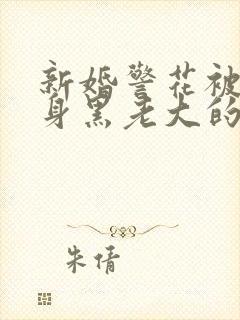 新婚警花被
身黑老大的
朱倩